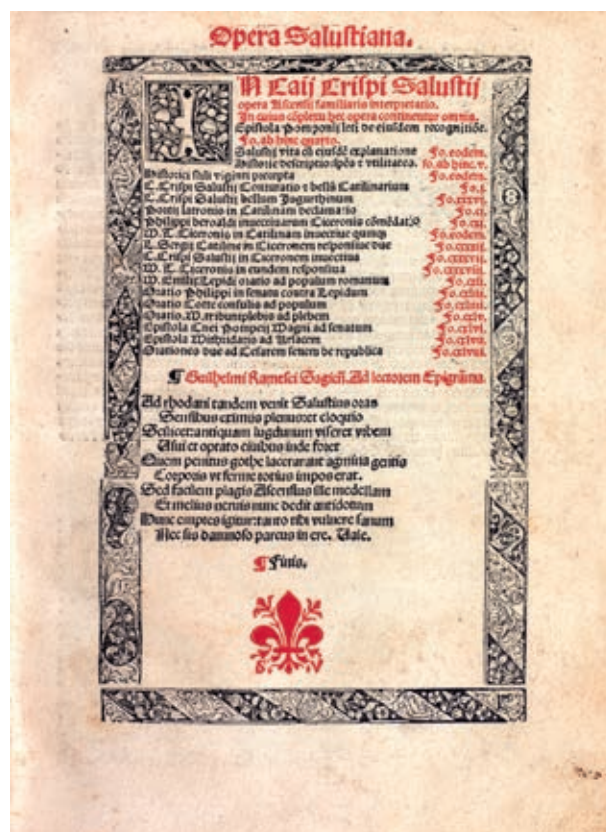 Opera Salustiana.
IN Caij Crispi Salustij
opera Ascensii familiaris interpretatio.
In cuius cōplexu hec opera continentur omnia.
Epistola Pomponij leti de eiusdem recognitiōe.
Fo. ab hinc quarto.
Salustij vita cū eiusdē explanatione Fo. eodem.
Historie descriptio spēs ⁊ vtilitates. fo. ab hinc. v.
Historici stili viginti precepta Fo. eodem.
C. Crispi Salustij Coniuratio ⁊ bellū Catilinarium Fo. j.
C. Crispi Salustij bellum Jugurthinum Fo. xxxvj.
Portij latronis in Catilinam declamatio Fo. cj.
Philippi beroaldi inuectiuarum Ciceronis cōmēdatio Fo. cxj.
M. T. Ciceronis in Catilinam inuectiue quinq; Fo. eodem.
L. Sergij Catiline in Ciceronem responsiue due Fo. cxxxij.
C. Crispi Salustij in Ciceronem inuectiua Fo. cxxxvij.
M. T. Ciceronis in eundem responsiua Fo. cxxxviij.
M. Emilij Lepidi oratio ad populum romanum Fo. cxlj.
Oratio Philippi in senatu contra Lepidum Fo. cxliij.
Oratio Cotte consulis ad populum Fo. cxliiij.
Oratio. M. tribuni plebis ad plebem Fo. cxlv.
Epistola Cnei Pompeij Magni ad senatum Fo. cxlvj.
Epistola Mithridatis ad Arsacem Fo. cxlvij.
Orationes due ad Cesarem senem de republica Fo. cxlviij.
¶ Guilhelmi Ramesei Sagieñ. Ad lectorem Epigrāma.
Ad rhodani tandem venit Salustius oras
Sensibus eximiis plenus: et eloquio
Scilicet: antiquam lugdunum viseret vrbem
Usui et optato ciuibus inde foret
Quem penitus gothe lacerarant agmina gentis
Corporis vt ferme totius impos erat.
Sed facilem plagis Ascensius ille medellam
Et melius neruis nunc dedit antidotum
Hunc emptes igitur: tanto tibi vulnere sanum
Nec sis damnoso parcus in ere. Vale.
¶ Finis.
S. V